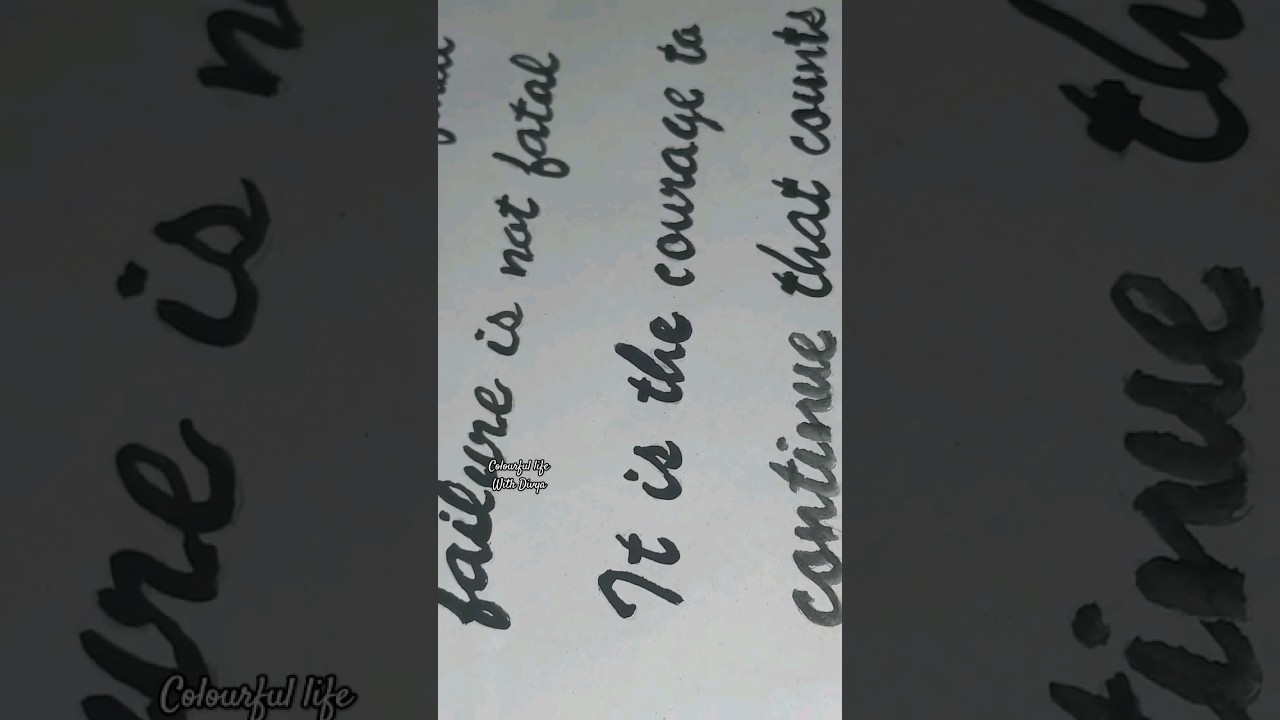 failure is not fatal
It is the courage to
continue that counts
Colourful life
With Divya